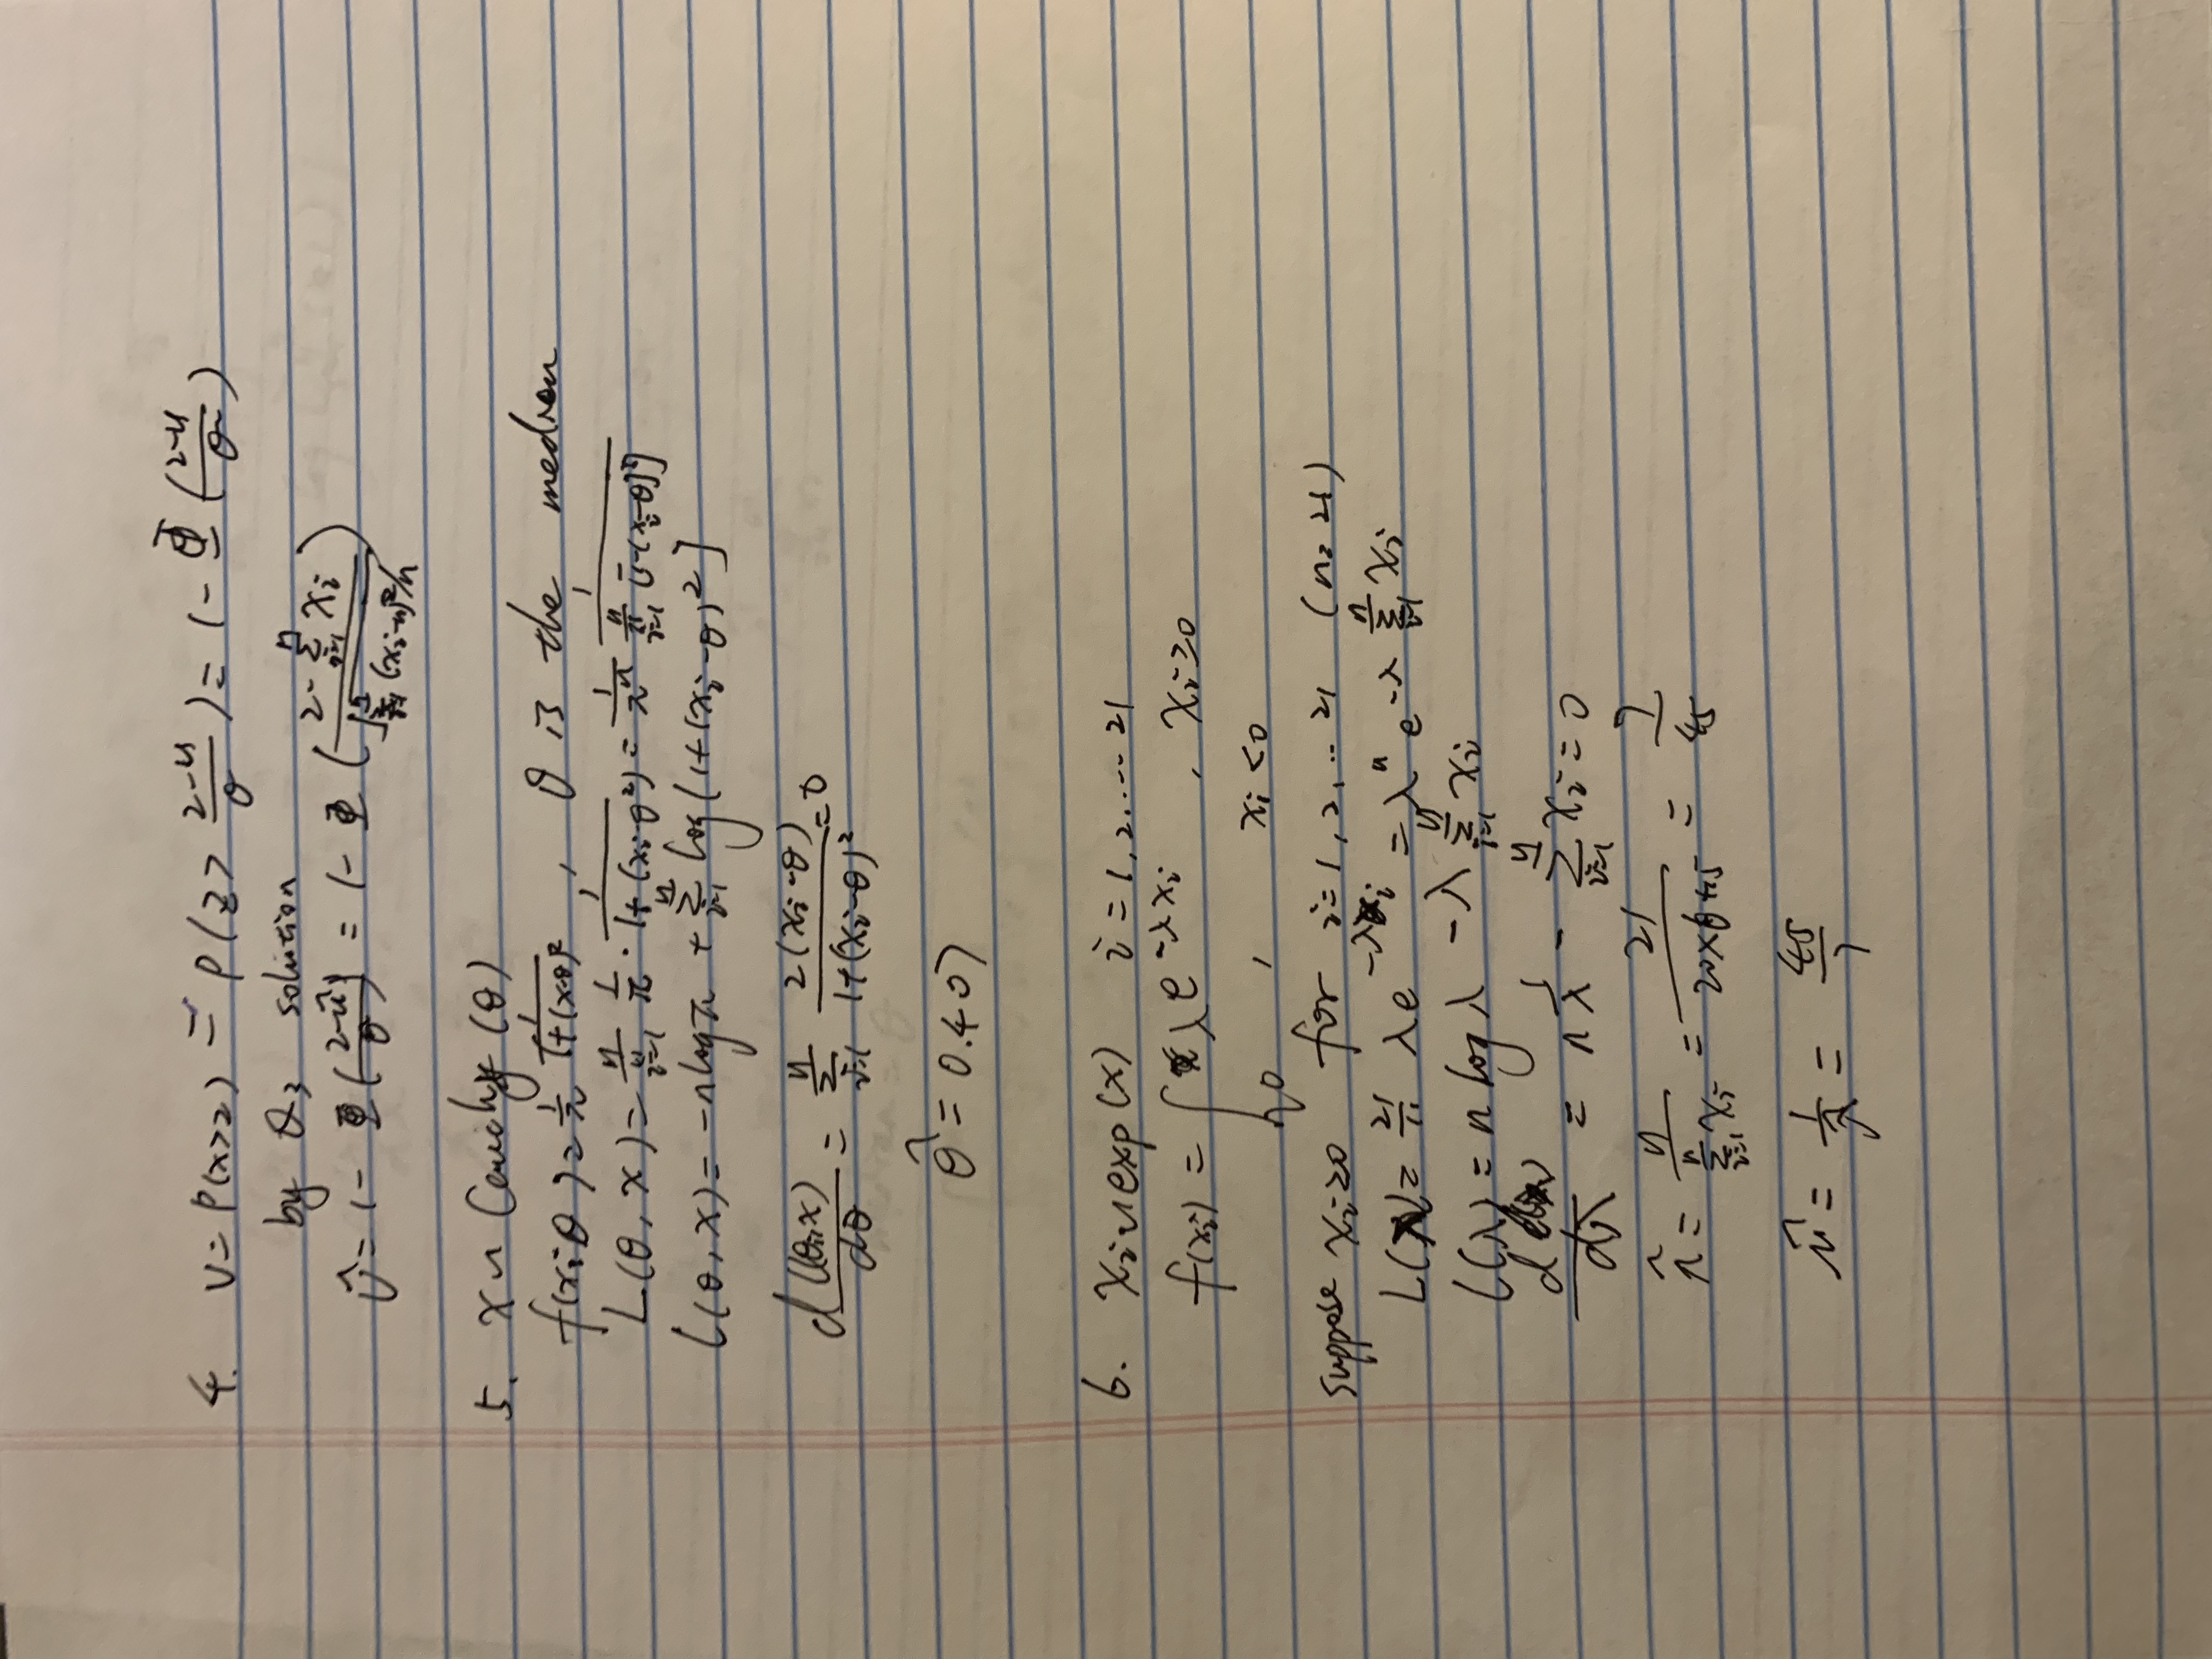 4. v = P(x>2) = P(z > (2-u)/σ) = 1 - Φ((2-u)/σ)
by Q3 solution
v̂ = 1 - Φ((2-û)/σ) = 1 - Φ((2 - Σ_{i=1}^{n} x_i)/√(Σ_{i=1}^{n} (x_i-u)²/n))
5. x ~ Cauchy (θ)
f(x; θ) = 1/π 1/(1+(x-θ)²), θ is the median
L(θ, x) = Π_{i=1}^{n} 1/π · 1/(1+(x_i-θ²)) = 1/π^n 1/(Π_{i=1}^{n} [1-(x_i-θ)²])
l(θ, x) = -nlogπ + Σ_{i=1}^{n} log[1+(x_i-θ)²]
d l(θ, x)/dθ = Σ_{i=1}^{n} 2(x_i-θ)/(1+(x_i-θ)²) = 0
θ̂ = 0.407
6. x_i ~ exp(x) i = 1, 2, .... 21
f(x_i) = { λe^{-λx_i} , x_i ≥ 0
0 , x_i < 0
suppose x_i ≥ 0 for i = 1, 2, .. 21 (n = 21)
L(λ) = Π^{21} λe^{-λx_i} = λ^n e^{-λ Σ_{i=1}^{n} x_i}
l(λ) = n log λ - λ Σ_{i=1}^{n} x_i
d l(λ)/dλ = n 1/λ - Σ_{i=1}^{n} x_i = 0
λ̂ = n/(Σ_{i=1}^{n} x_i) = 21/(20×6+15) = 7/45
û = 1/λ̂ = 45/7